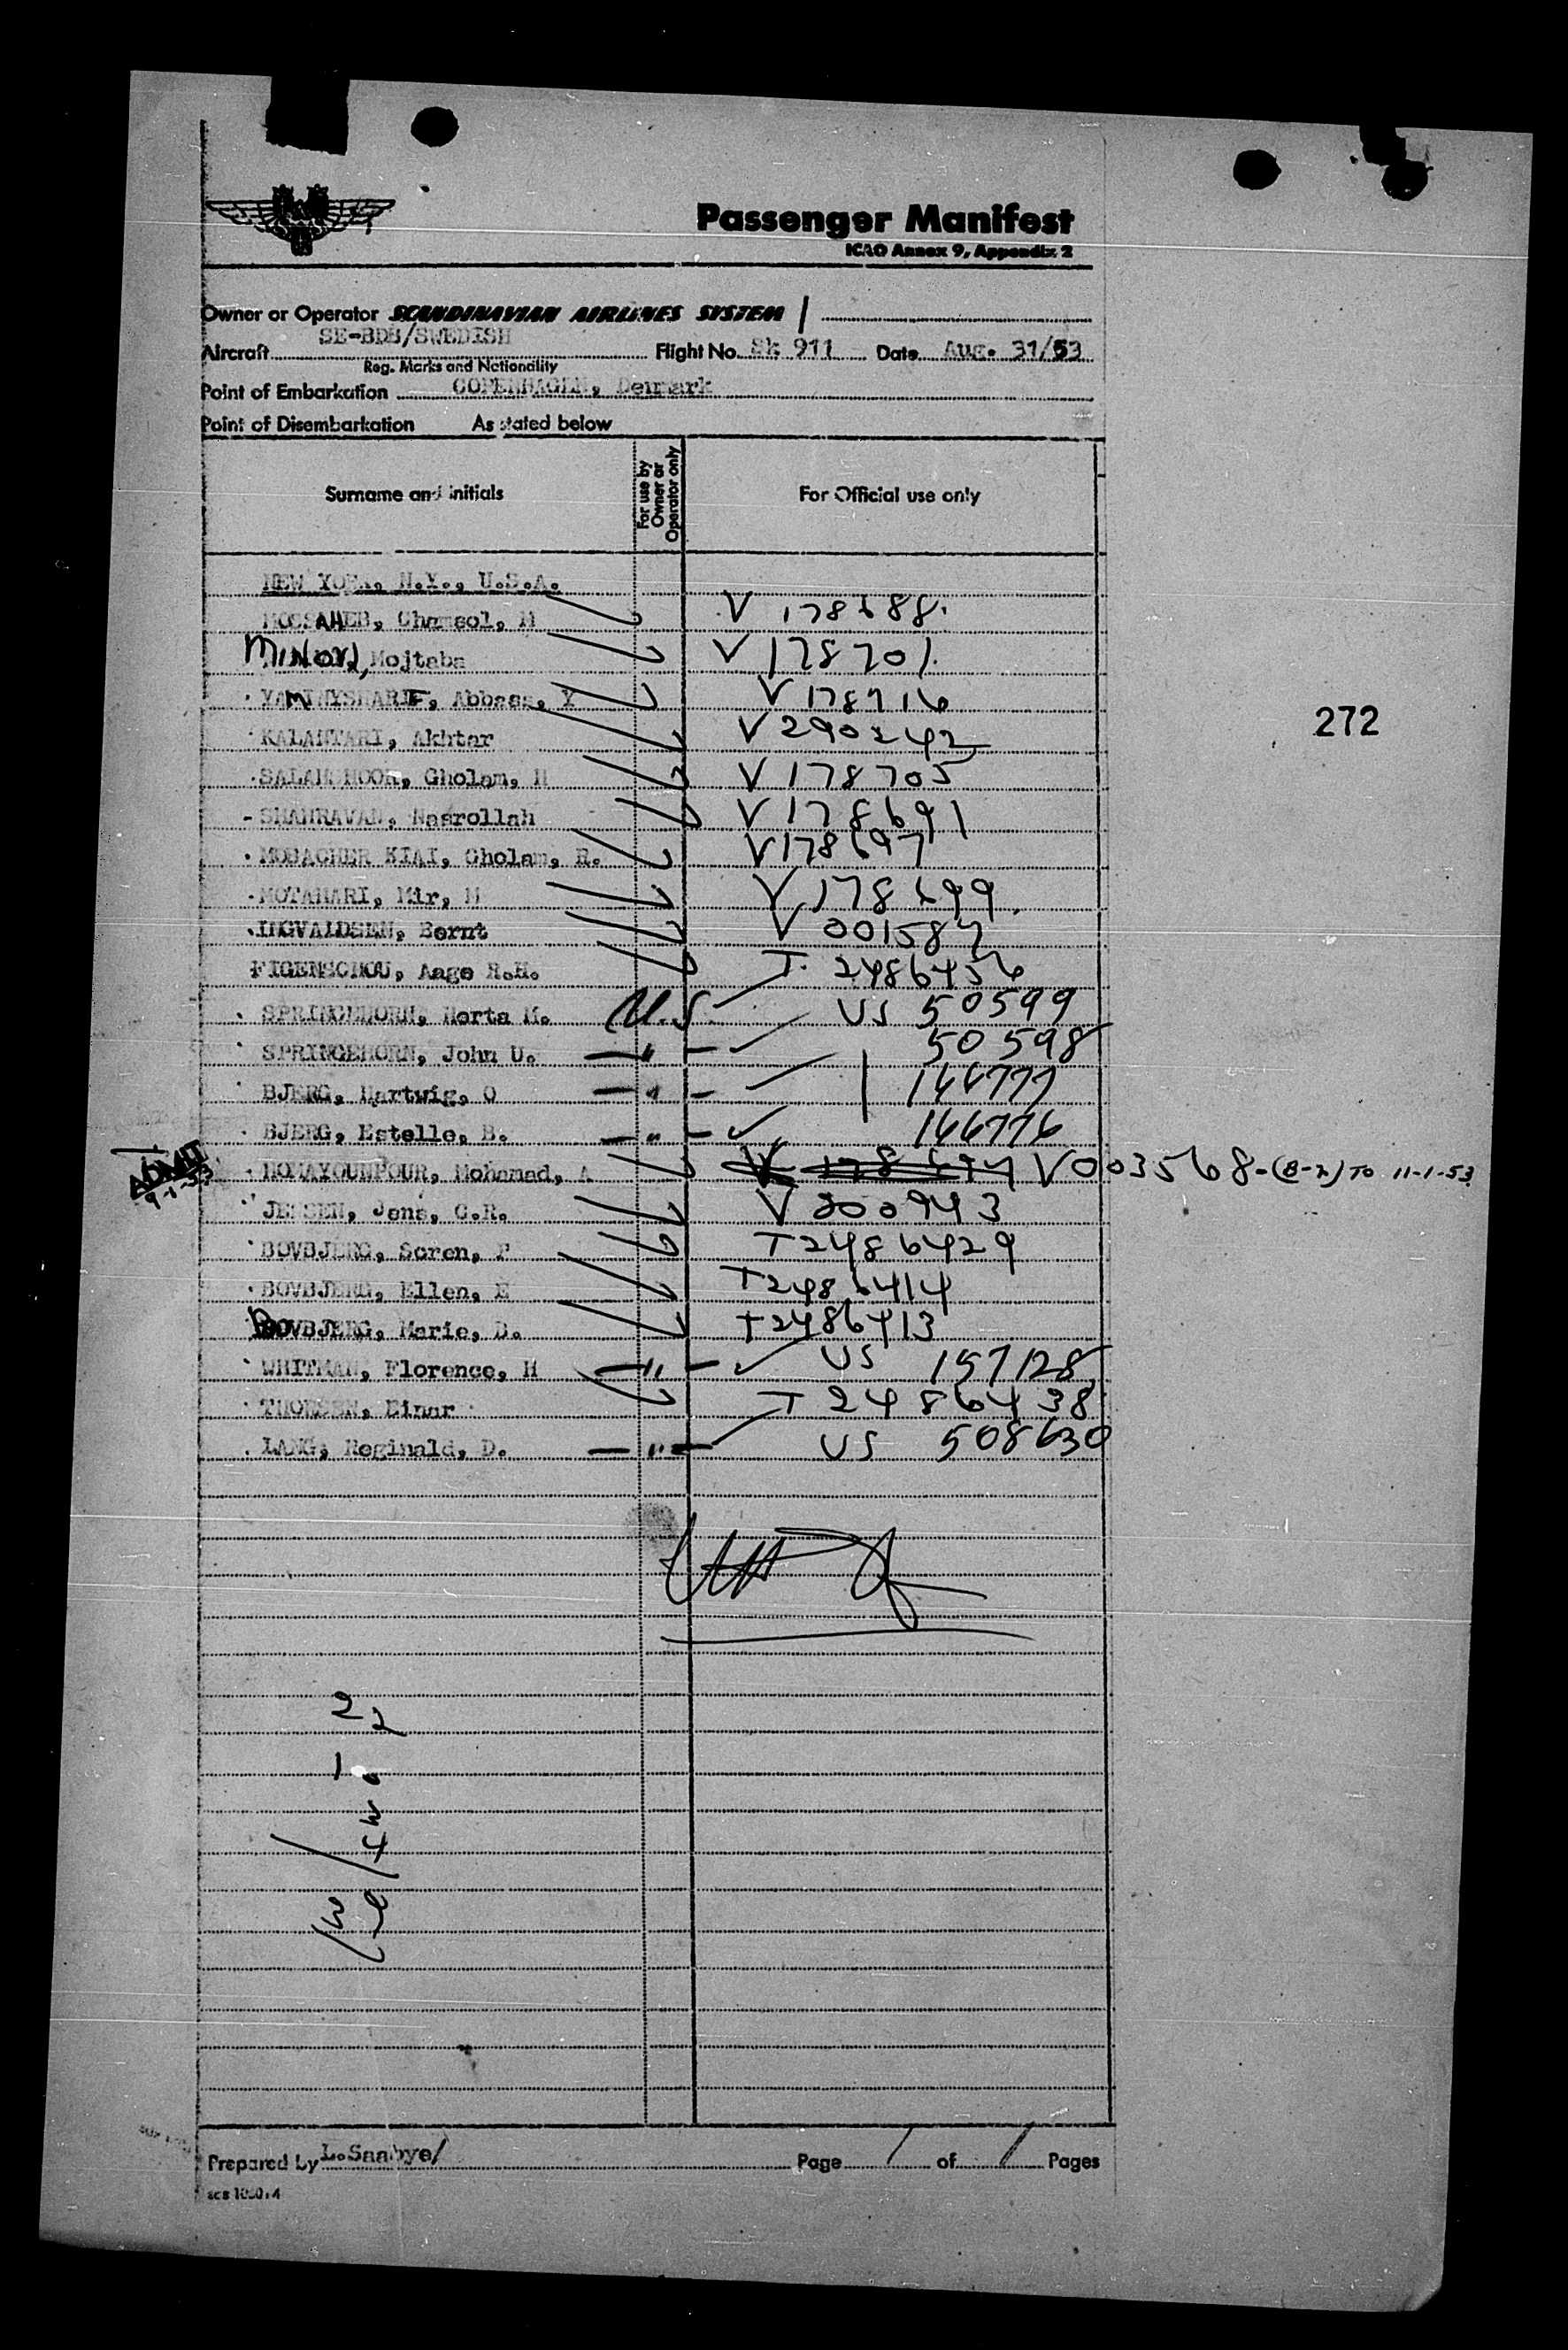 Passenger Manifest
ICAO Annex 9, Appendix 2
Owner or Operator SCANDINAVIAN AIRLINES SYSTEM
Aircraft SE-BDB/SWEDISH Flight No. Sk 911 Date Aug. 31/53
Reg. Marks and Nationality
Point of Embarkation COPENHAGEN, Denmark
Point of Disembarkation As stated below
Surname and initials For use by Owner or Operator only For Official use only
NEW YORK, N.Y., U.S.A.
MOSSAHEB, Chamsol, M V 178688.
Mojtaba V 178701.
YAMINYSHARIF, Abbass, Y V 178716
KALANTARI, Akhtar V 290242
272
Gholam, H V 178705
SHAHRAVAN, Nasrollah V 178691
MOBACHER KIAI, Gholam, R. V 178697
MOTAHARI, Mir, M V 178699.
INGVALDSEN, Bernt V 001587
FIGENSCHOU, Aage R.H. T. 2486456
SPRINGEHORN, Herta M. U.S. US 50599
SPRINGEHORN, John U. — " — 50598
BJERG, Hartwig, O — " — 144777
BJERG, Estelle, B. — " — 144776
ADMIT HOMAYOUNPOUR, Mohamad, A V003568-(B-2) TO 11-1-53
9-1-53
JESSEN, Jens, C.R. V 200943
BOVBJERG, Soren, P T2486429
BOVBJERG, Ellen, E T2486414
BOVBJERG, Marie, B. T2486413
WHITMAN, Florence, H — " — US 157128
THOESEN, Einar T 2486438
LANG, Reginald, D. — " — US 508630
Prepared by L.Saabye/ Page 1 of 1 Pages